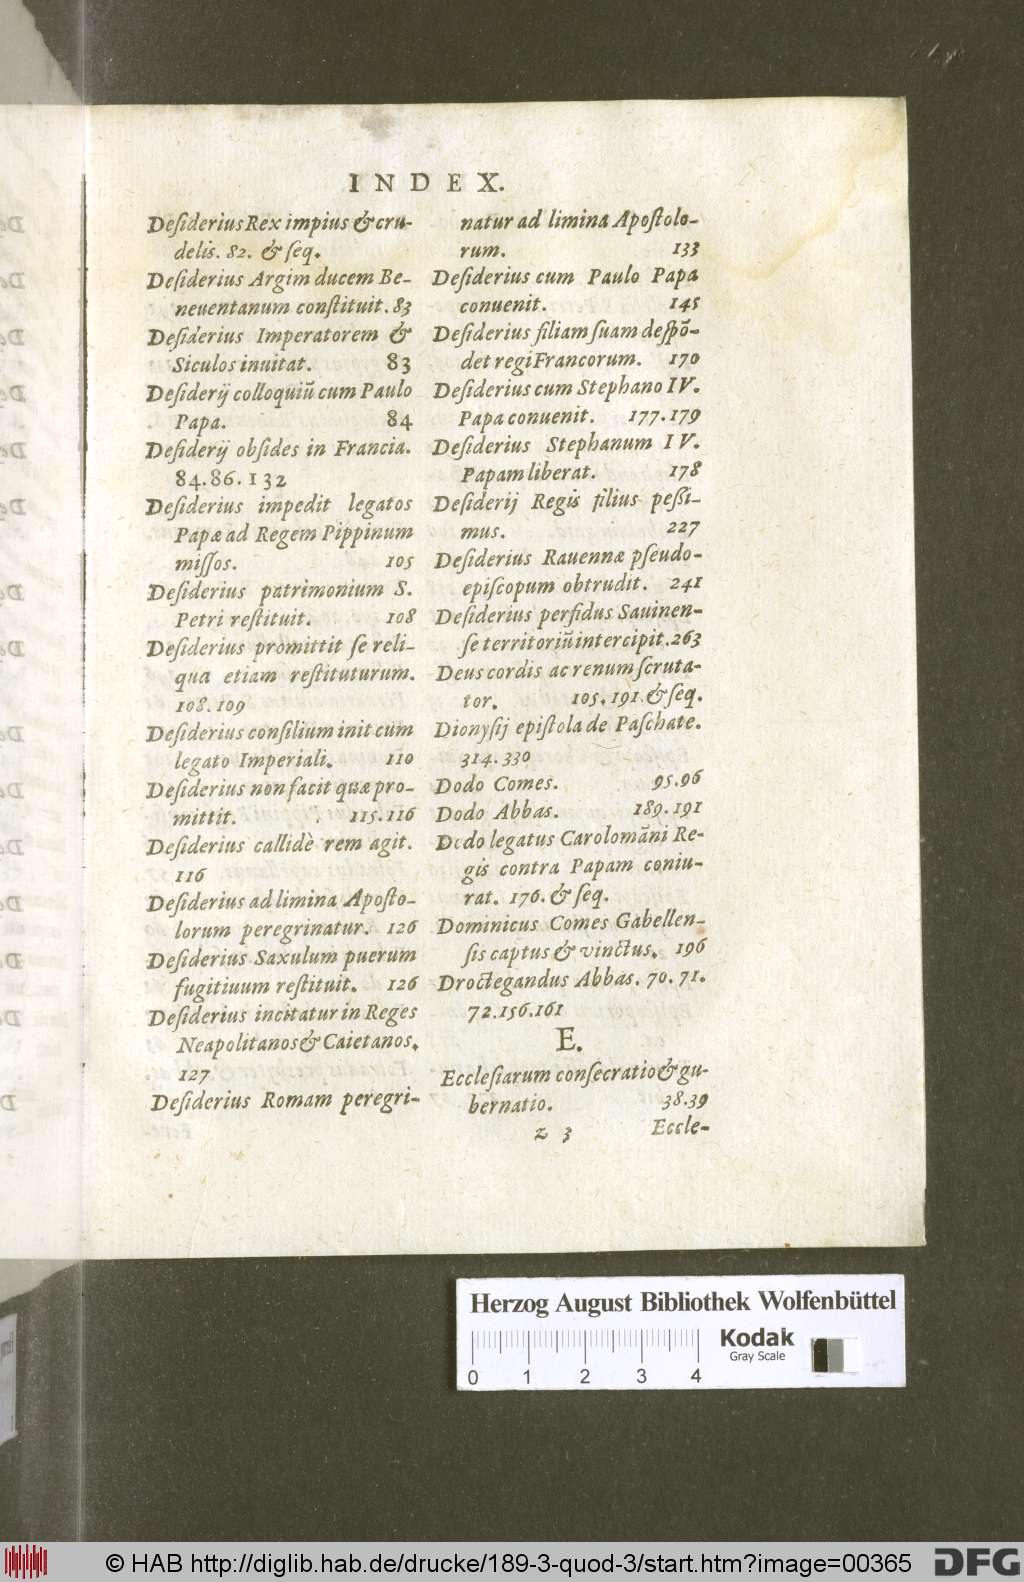 INDEX.
Desiderius Rex impius & cru-
delis. 82. & seq.
Desiderius Argim ducem Be-
neuentanum constituit. 83
Desiderius Imperatorem &
Siculos inuitat. 83
Desiderij colloquiū cum Paulo
Papa. 84
Desiderij obsides in Francia.
84. 86. 132
Desiderius impedit legatos
Papæ ad Regem Pippinum
missos. 105
Desiderius patrimonium S.
Petri restituit. 108
Desiderius promittit se reli-
qua etiam restituturum.
108. 109
Desiderius consilium init cum
legato Imperiali. 110
Desiderius non facit quæ pro-
mittit. 115. 116
Desiderius callidè rem agit.
116
Desiderius ad limina Aposto-
lorum peregrinatur. 126
Desiderius Saxulum puerum
fugitiuum restituit. 126
Desiderius incitatur in Reges
Neapolitanos & Caietanos.
127
Desiderius Romam peregri-
natur ad limina Apostolo-
rum. 133
Desiderius cum Paulo Papa
conuenit. 145
Desiderius filiam suam despō-
det regi Francorum. 170
Desiderius cum Stephano IV.
Papa conuenit. 177. 179
Desiderius Stephanum IV.
Papam liberat. 178
Desiderij Regis filius pessi-
mus. 227
Desiderius Rauennæ pseudo-
episcopum obtrudit. 241
Desiderius perfidus Sauinen-
se territoriū intercipit. 263
Deus cordis ac renum scruta-
tor. 105. 191. & seq.
Dionysij epistola de Paschate.
314. 330
Dodo Comes. 95. 96
Dodo Abbas. 189. 191
Dodo legatus Carolomāni Re-
gis contra Papam coniu-
rat. 176. & seq.
Dominicus Comes Gabellen-
sis captus & vinctus. 196
Droctegandus Abbas. 70. 71.
72. 156. 161
E.
Ecclesiarum consecratio & gu-
bernatio. 38. 39
z 3 Eccle-
Herzog August Bibliothek Wolfenbüttel
Kodak
Gray Scale
0 1 2 3 4
© HAB http://diglib.hab.de/drucke/189-3-quod-3/start.htm?image=00365
DFG